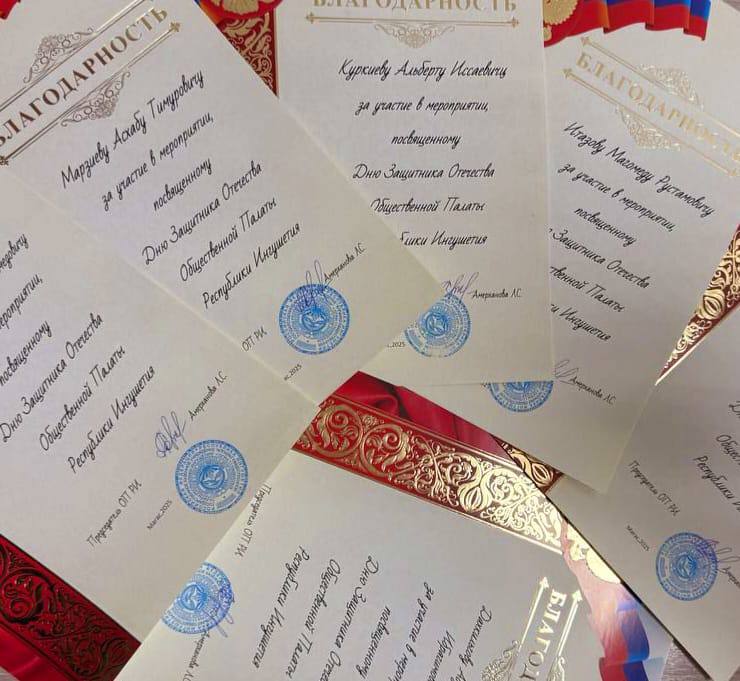 БЛАГОДАРНОСТЬ
Марзиеву Асхабу Тимуровичу
за участие в мероприятии,
посвященному
Дню Защитника Отечества
Общественной Палаты
Республики Ингушетия
Амерханова Л.С.
ОП РИ
БЛАГОДАРНОСТЬ
Куркиеву Альберту Иссаевичу
за участие в мероприятии,
посвященному
Дню Защитника Отечества
Общественной Палаты
Ингушетия
Амерханова Л.С.
2025
БЛАГОДАРНОСТЬ
Итазову Магомеду Рустамовичу
за участие в мероприятии,
посвященному
Защитника Отечества
Палаты
Ингушетия
Амерханова Л.С.
посвященному
Дню Защитника Отечества
Общественной Палаты
Республики Ингушетия
Амерханова Л.С.
Председатель ОП РИ
Магас,2025
Республики
Председатель ОП РИ
Магас,2025
за участие в
посвященному
Дню Защитника
Общественной Палаты
Республики Ингушетия
Председатель ОП РИ
Амерханова Л.С.